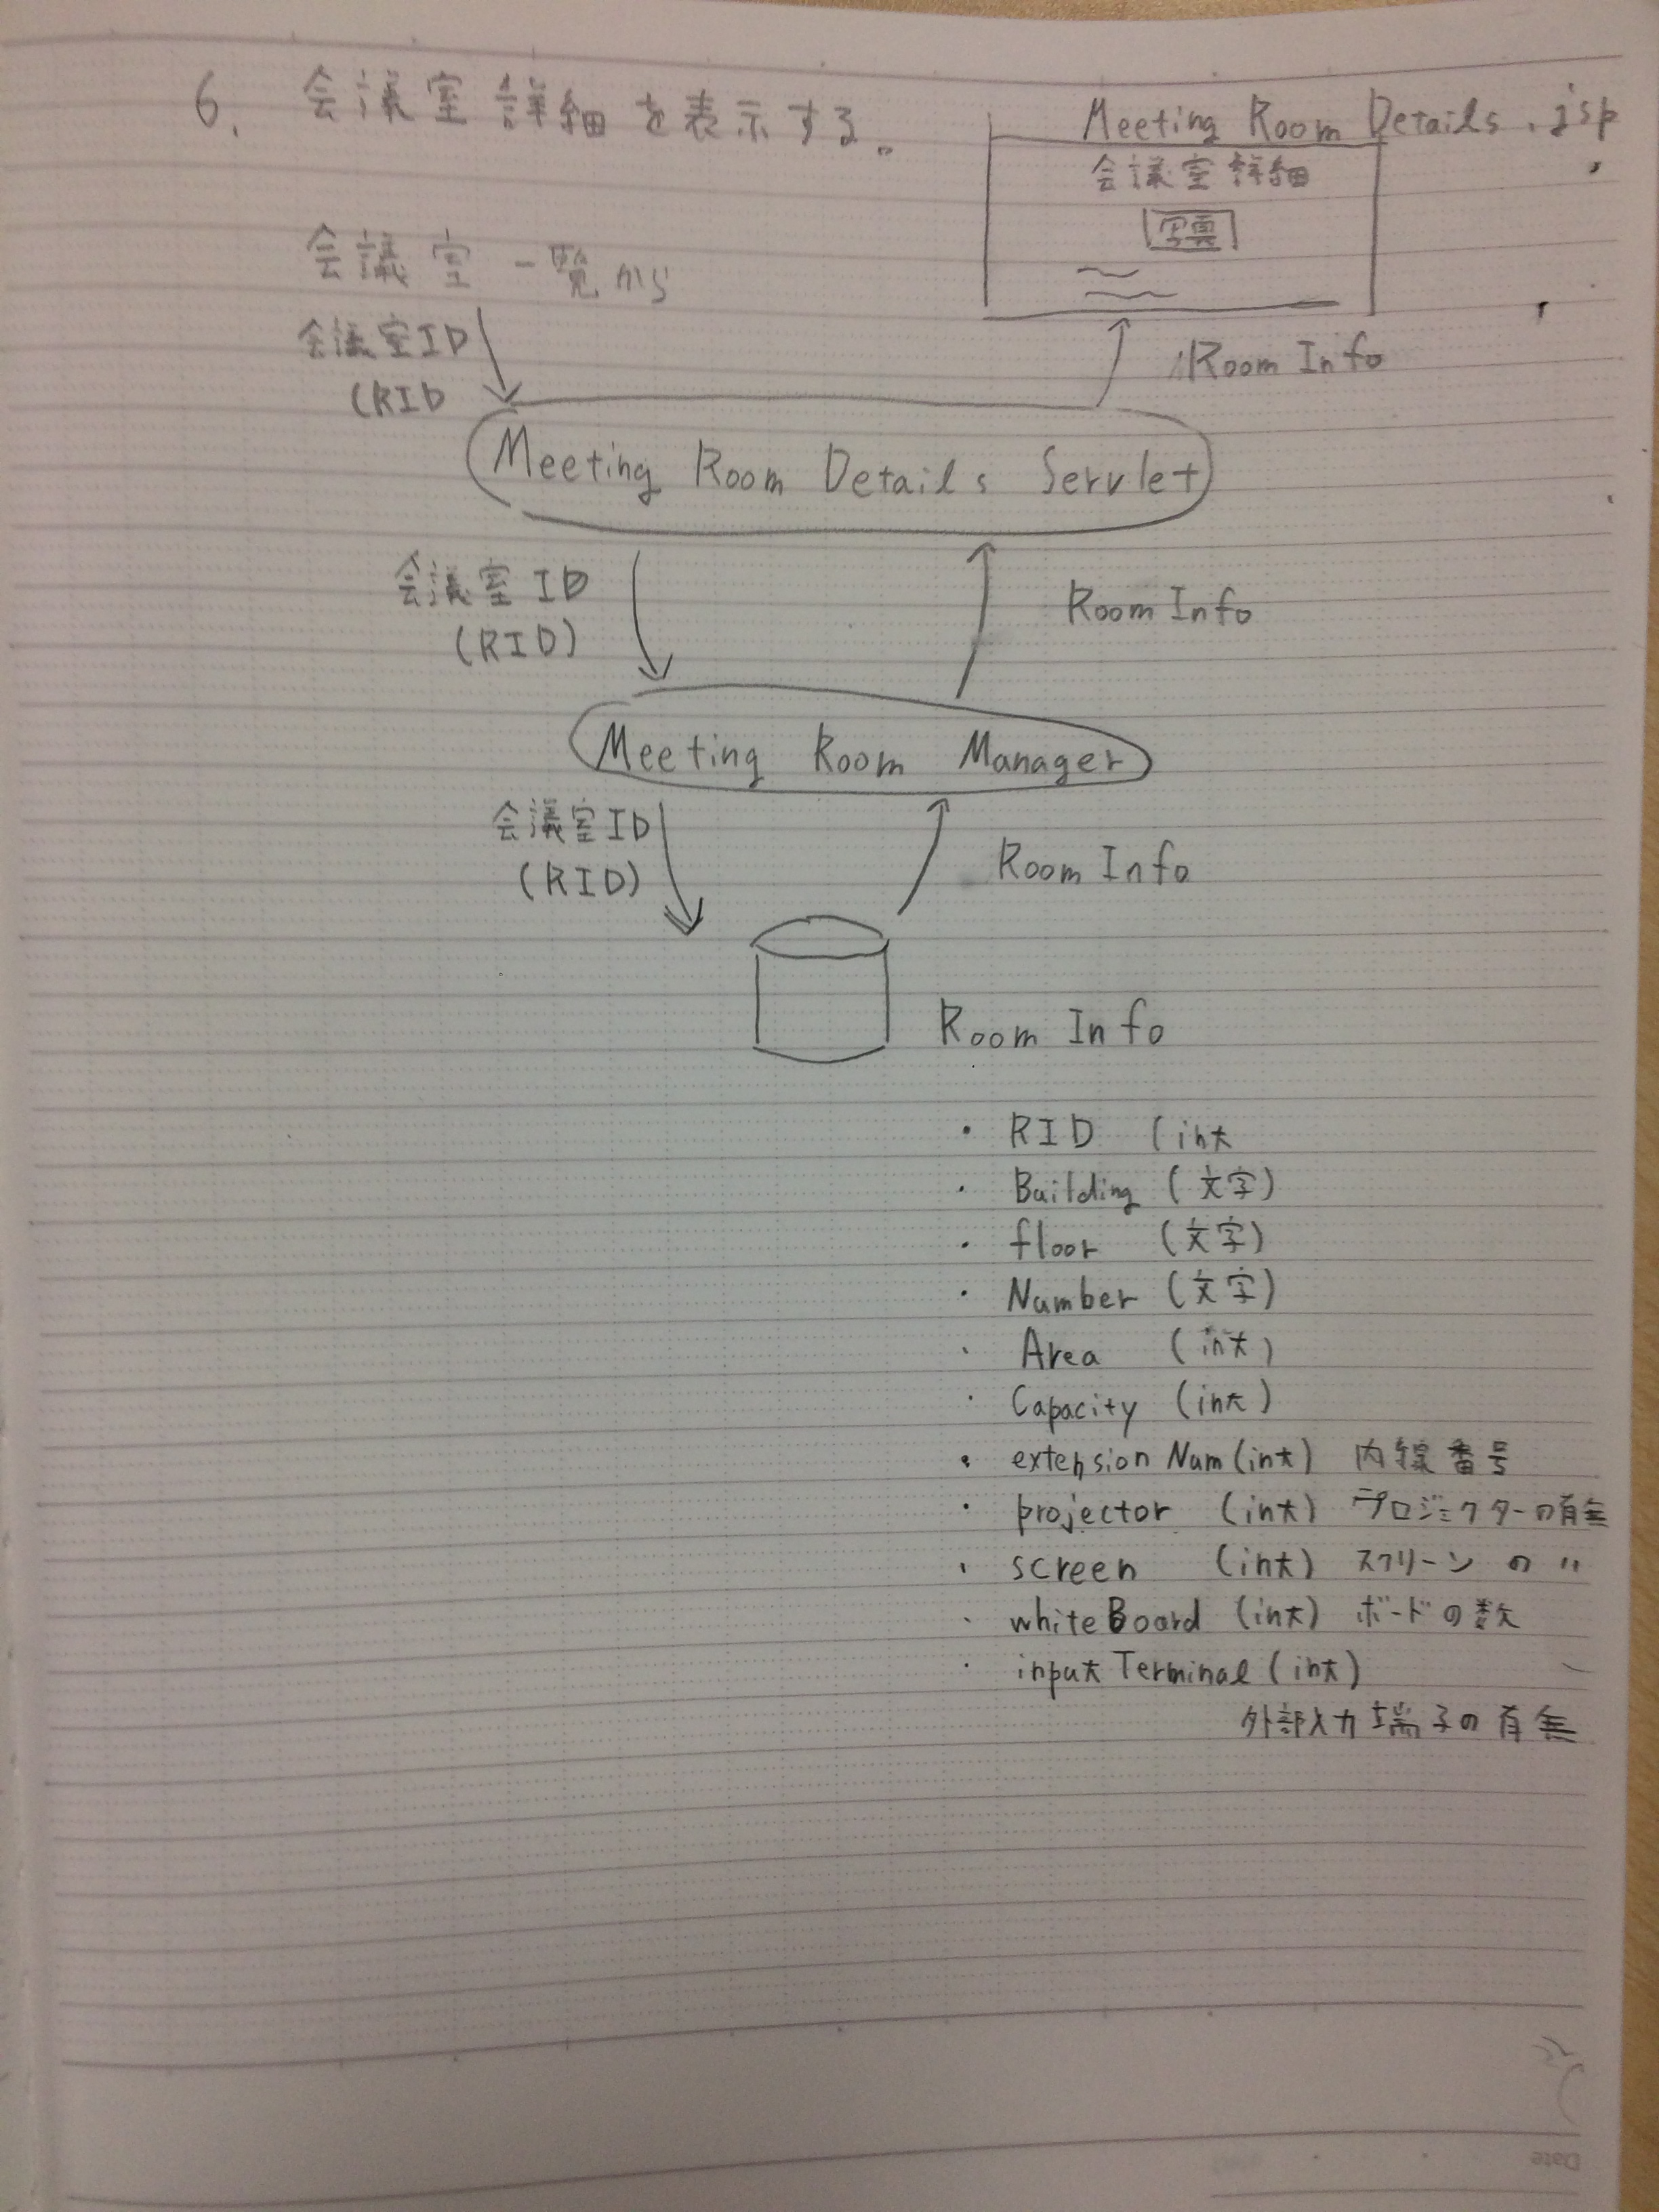 6. 会議室詳細を表示する。
Meeting Room Details.jsp
会議室詳細
写真
会議室一覧から
会議室ID
(RID
Room Info
Meeting Room Details Servlet
会議室ID
(RID)
Room Info
Meeting Room Manager
会議室ID
(RID)
Room Info
Room Info
・ RID (int
・ Building (文字)
・ floor (文字)
・ Number (文字)
・ Area (int)
・ Capacity (int)
・ extension Num (int) 内線番号
・ projector (int) プロジェクターの有無
・ screen (int) スクリーンの 〃
・ whiteBoard (int) ボードの数
・ input Terminal (int)
外部入力端子の有無
Date